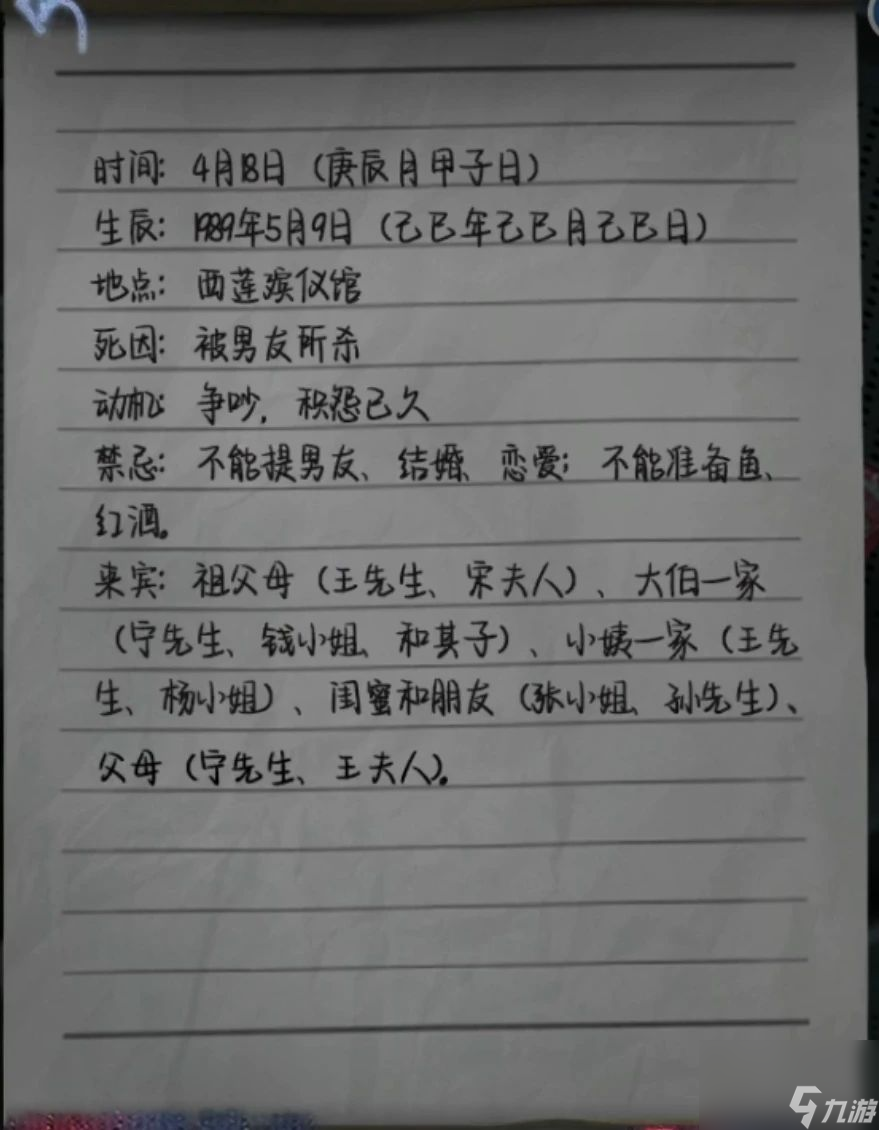 时间：4月18日（庚辰月甲子日）
生辰：1989年5月9日（己巳年己巳月己巳日）
地点：西莲殡仪馆
死因：被男友所杀
动机：争吵，积怨已久
禁忌：不能提男友、结婚、恋爱；不能准备鱼、
红酒。
来宾：祖父母（王先生、宋夫人）、大伯一家
（宁先生、钱小姐、和其子）、小姨一家（王先
生、杨小姐）、闺蜜和朋友（张小姐、孙先生）、
父母（宁先生、王夫人）。
九游